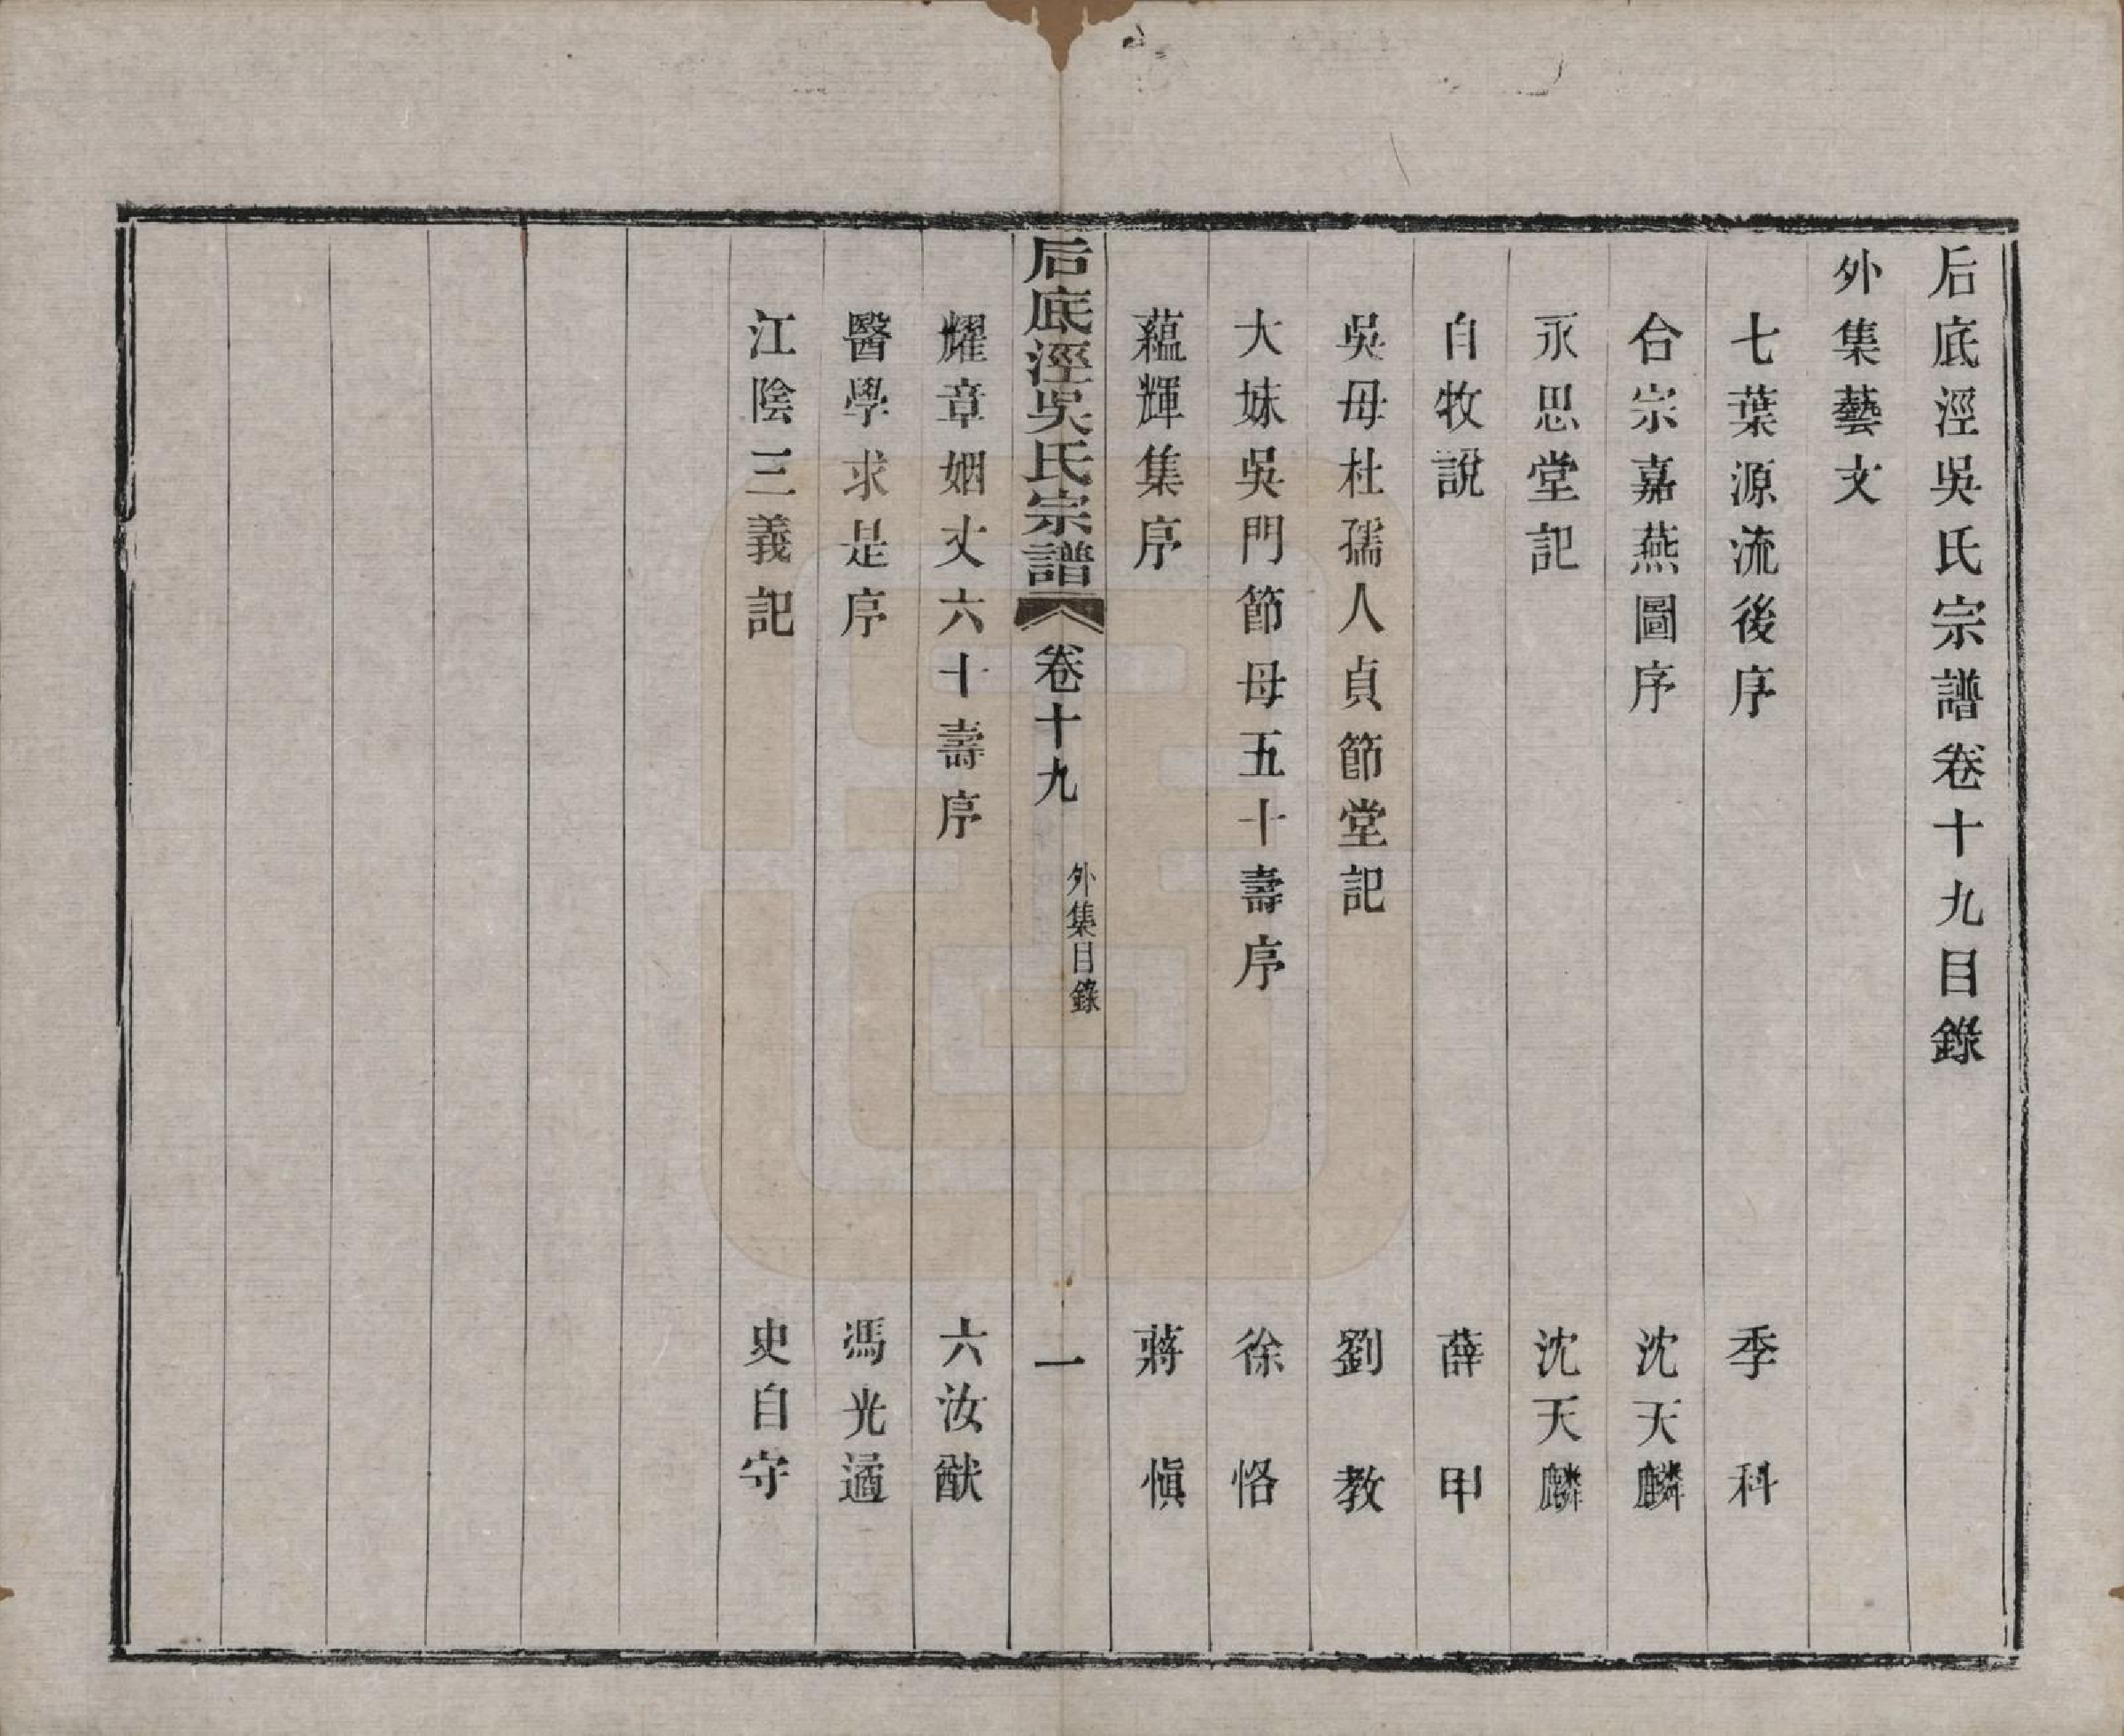 后底涇吳氏宗譜卷十九目錄
外集藝文
七葉源流後序 季科
合宗嘉燕圖序 沈天麟
永思堂記 沈天麟
自牧說 薛甲
吳母杜孺人貞節堂記 劉教
大妹吳門節母五十壽序 徐恪
蘊輝集序 蔣愼
后底涇吳氏宗譜 卷十九 外集目錄 一
耀章姻丈六十壽序 六汝猷
醫學求是序 馮光遹
江陰三義記 史自守